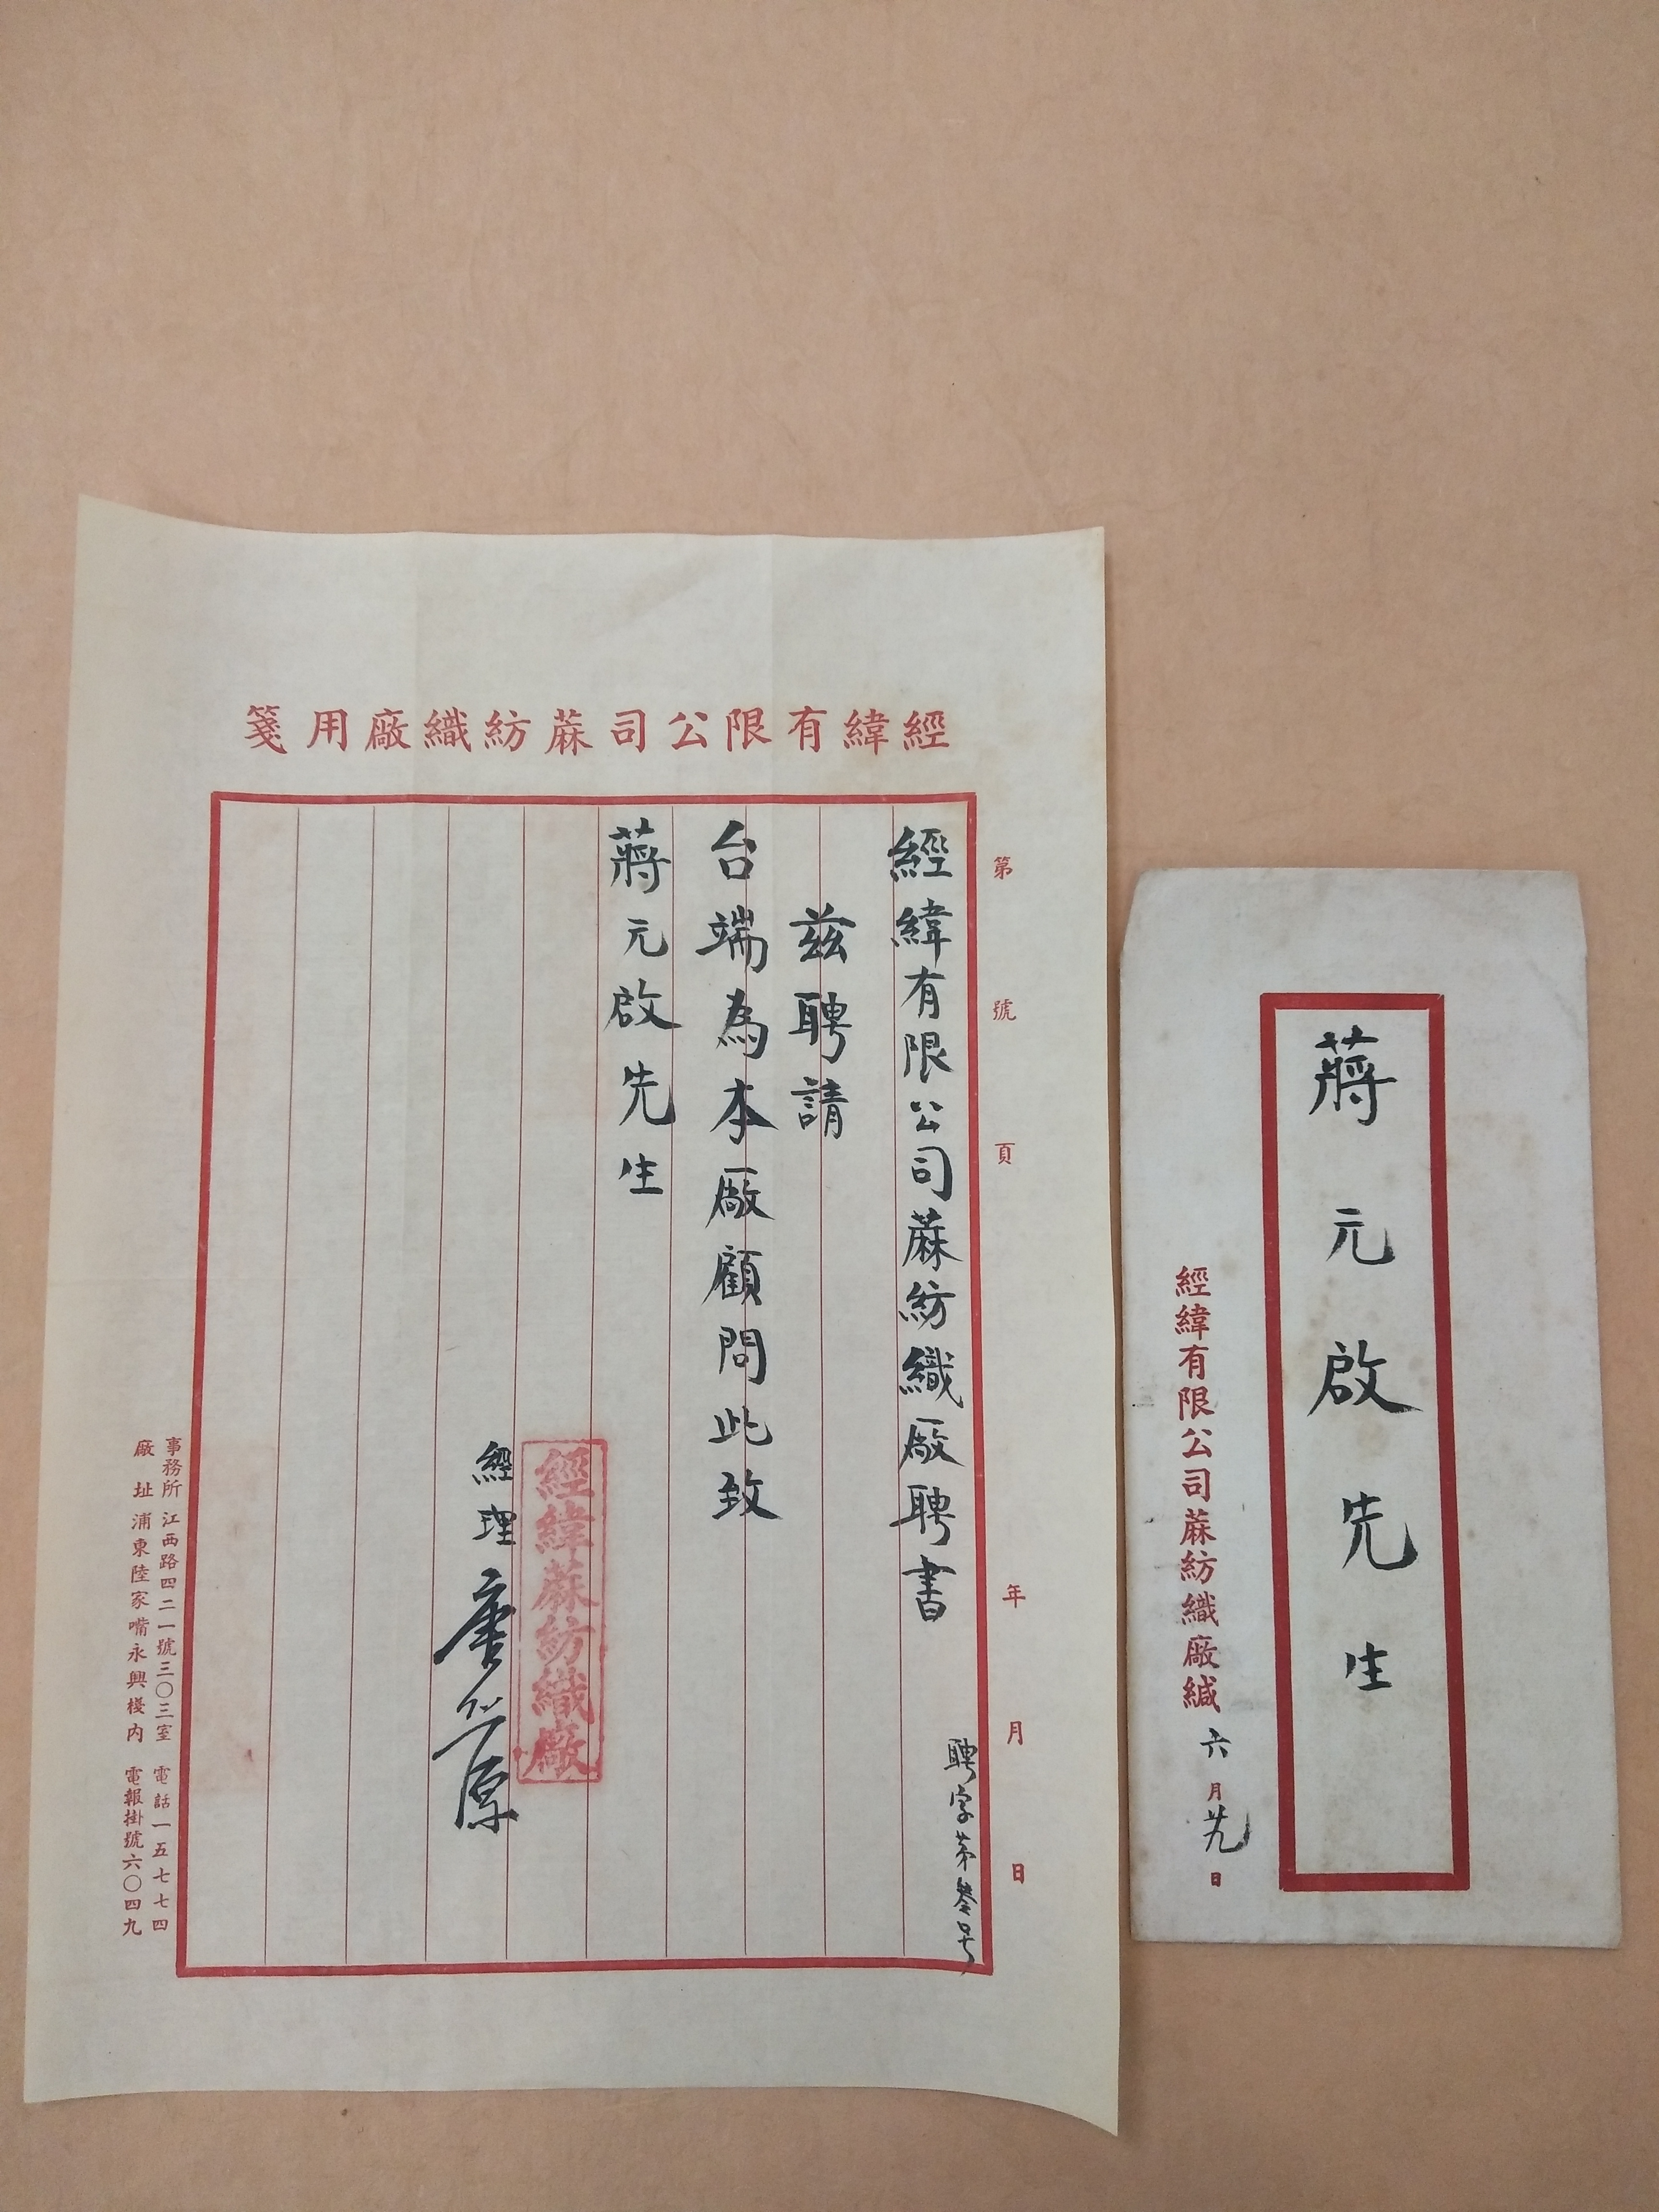 經緯有限公司蔴紡織廠用箋
第 號 頁 年 月 日
聘字第叁号
經緯有限公司蔴紡織廠聘書
茲聘請
台端為本廠顧問此致
蔣元啟先生
經緯蔴紡織廠
經理
事務所 江西路四二一號三〇三室 電話一五七七四
廠址 浦東陸家嘴永興棧內 電報掛號六〇四九
蔣元啟先生
經緯有限公司蔴紡織廠緘 六月廿九日